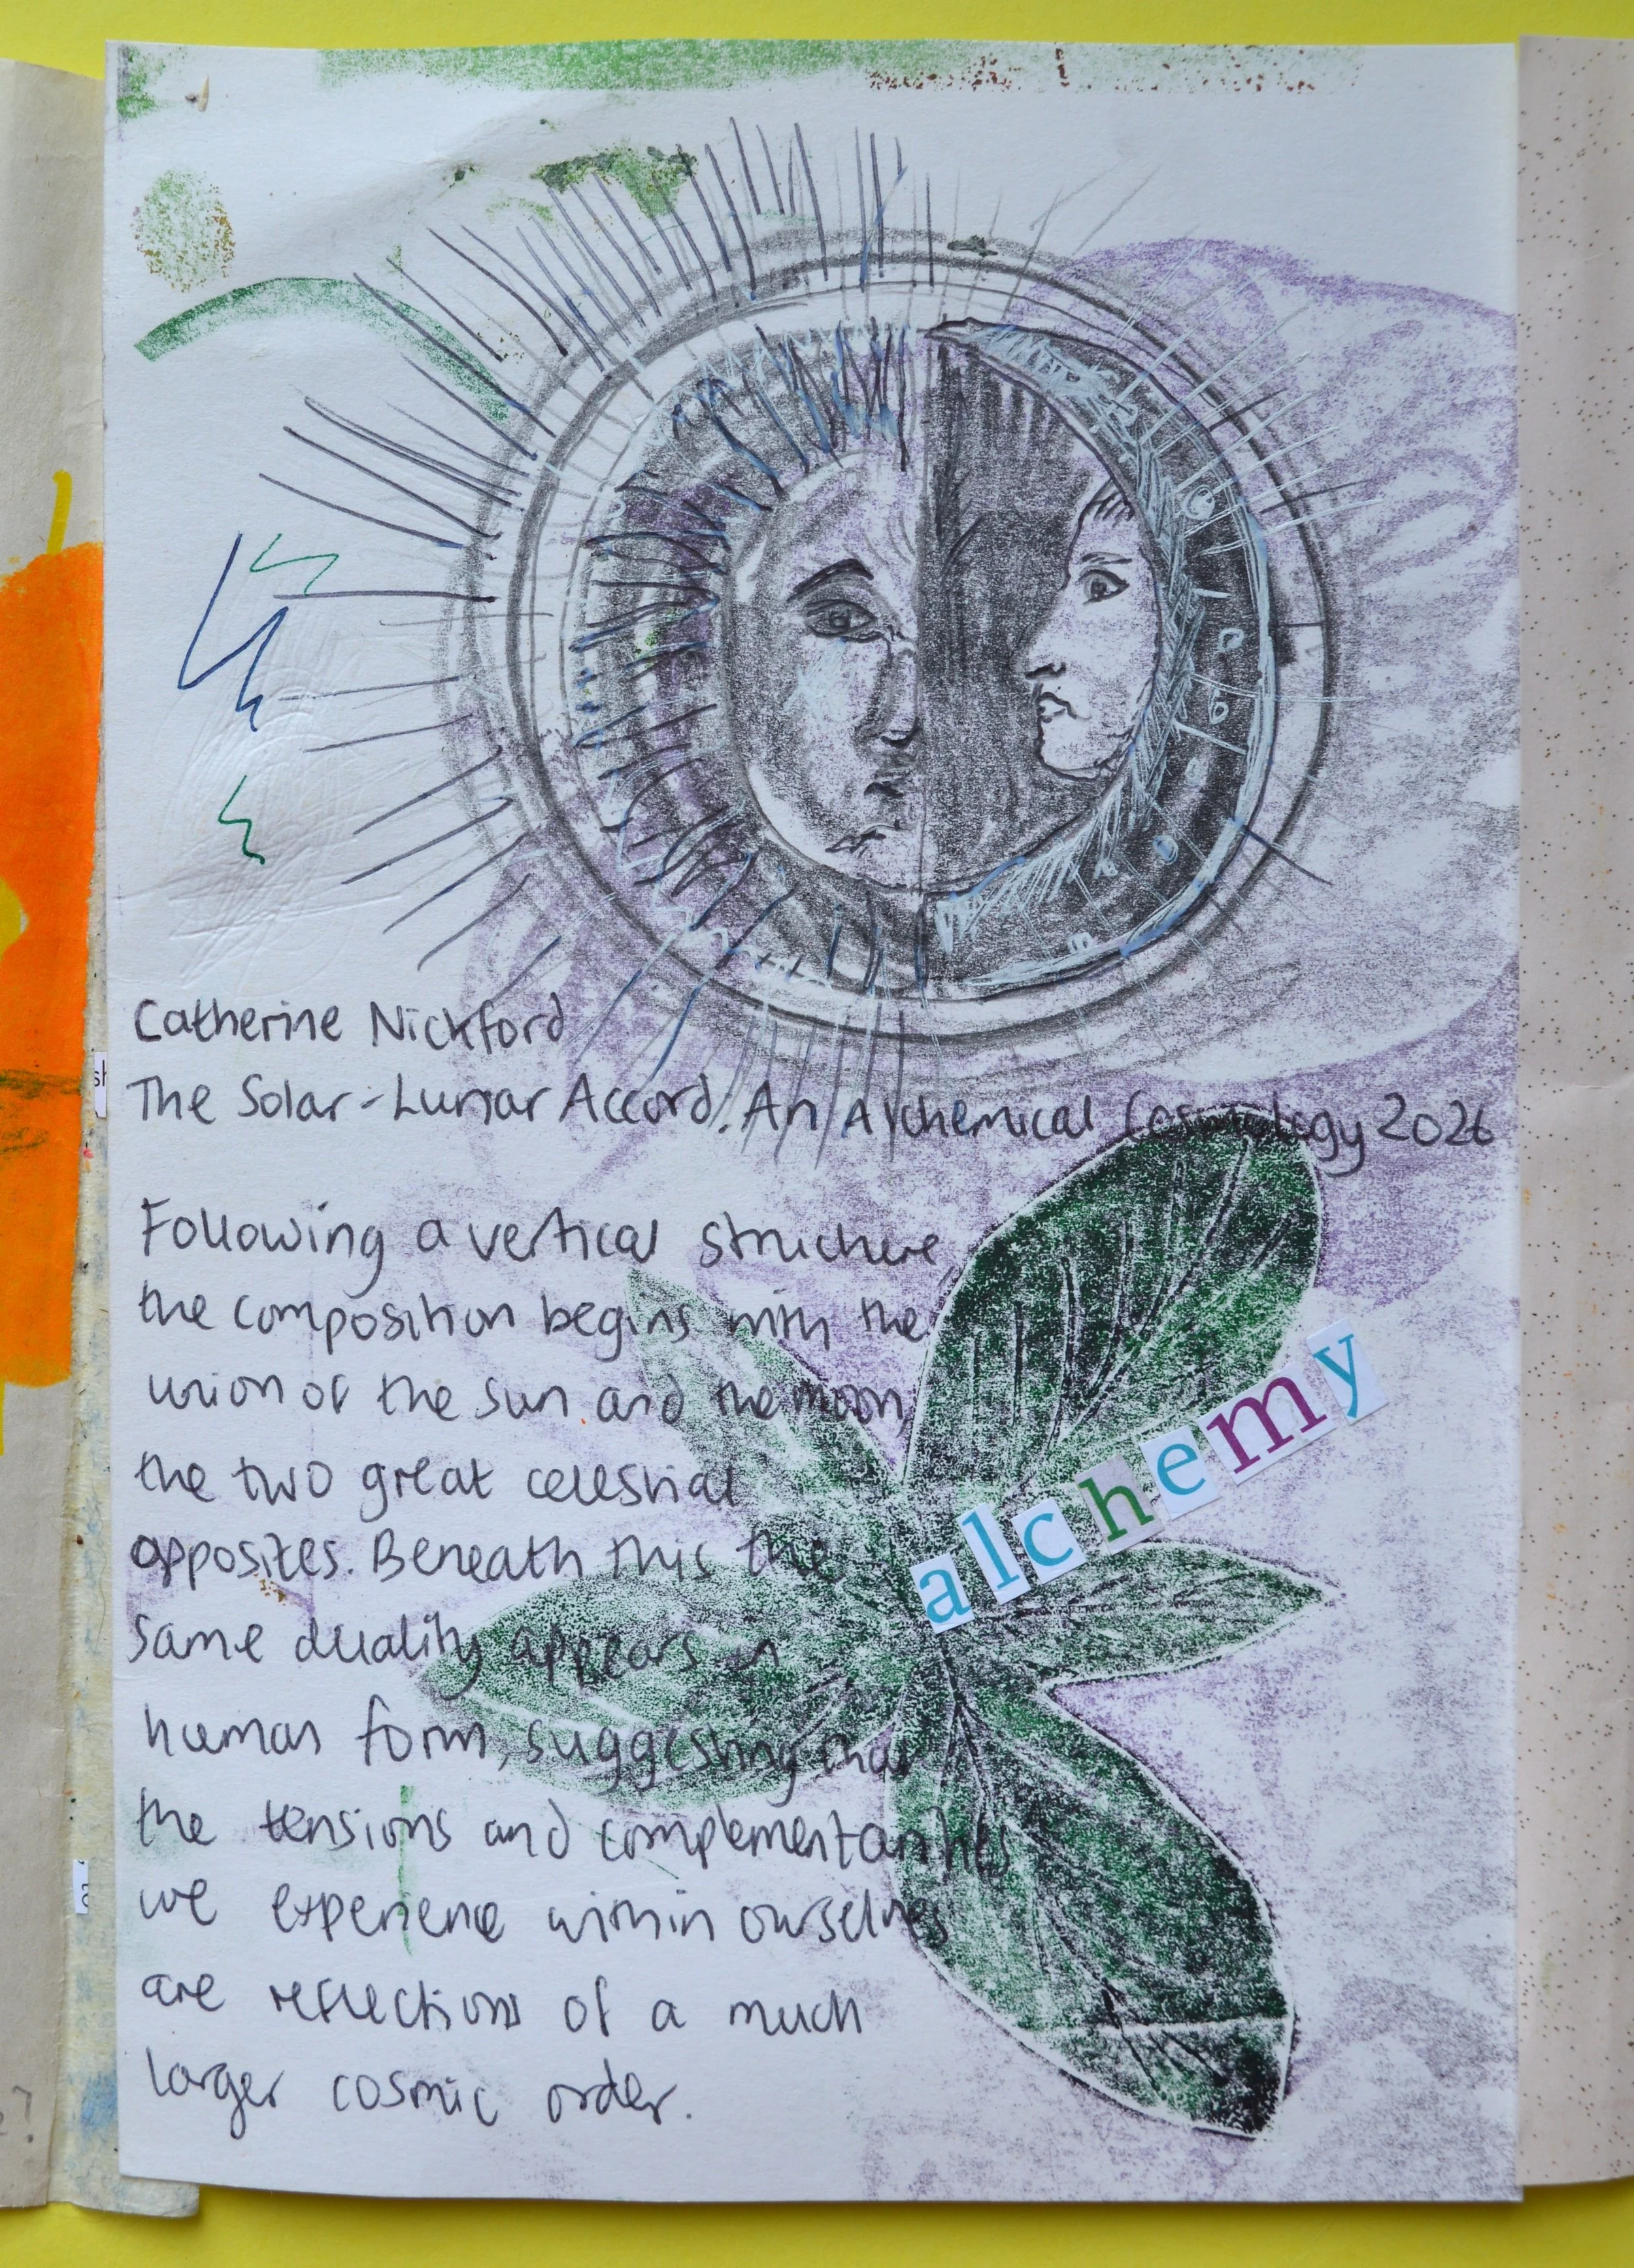 Catherine Nickford
The Solar-Lunar Accord. An Alchemical Cosmology 2026
Following a vertical structure,
the composition begins with the
union of the sun and the moon,
the two great celestial
opposites. Beneath this the
same duality appears in
human form, suggesting that
the tensions and complementarities
we experience within ourselves
are reflections of a much
larger cosmic order.
alchemy